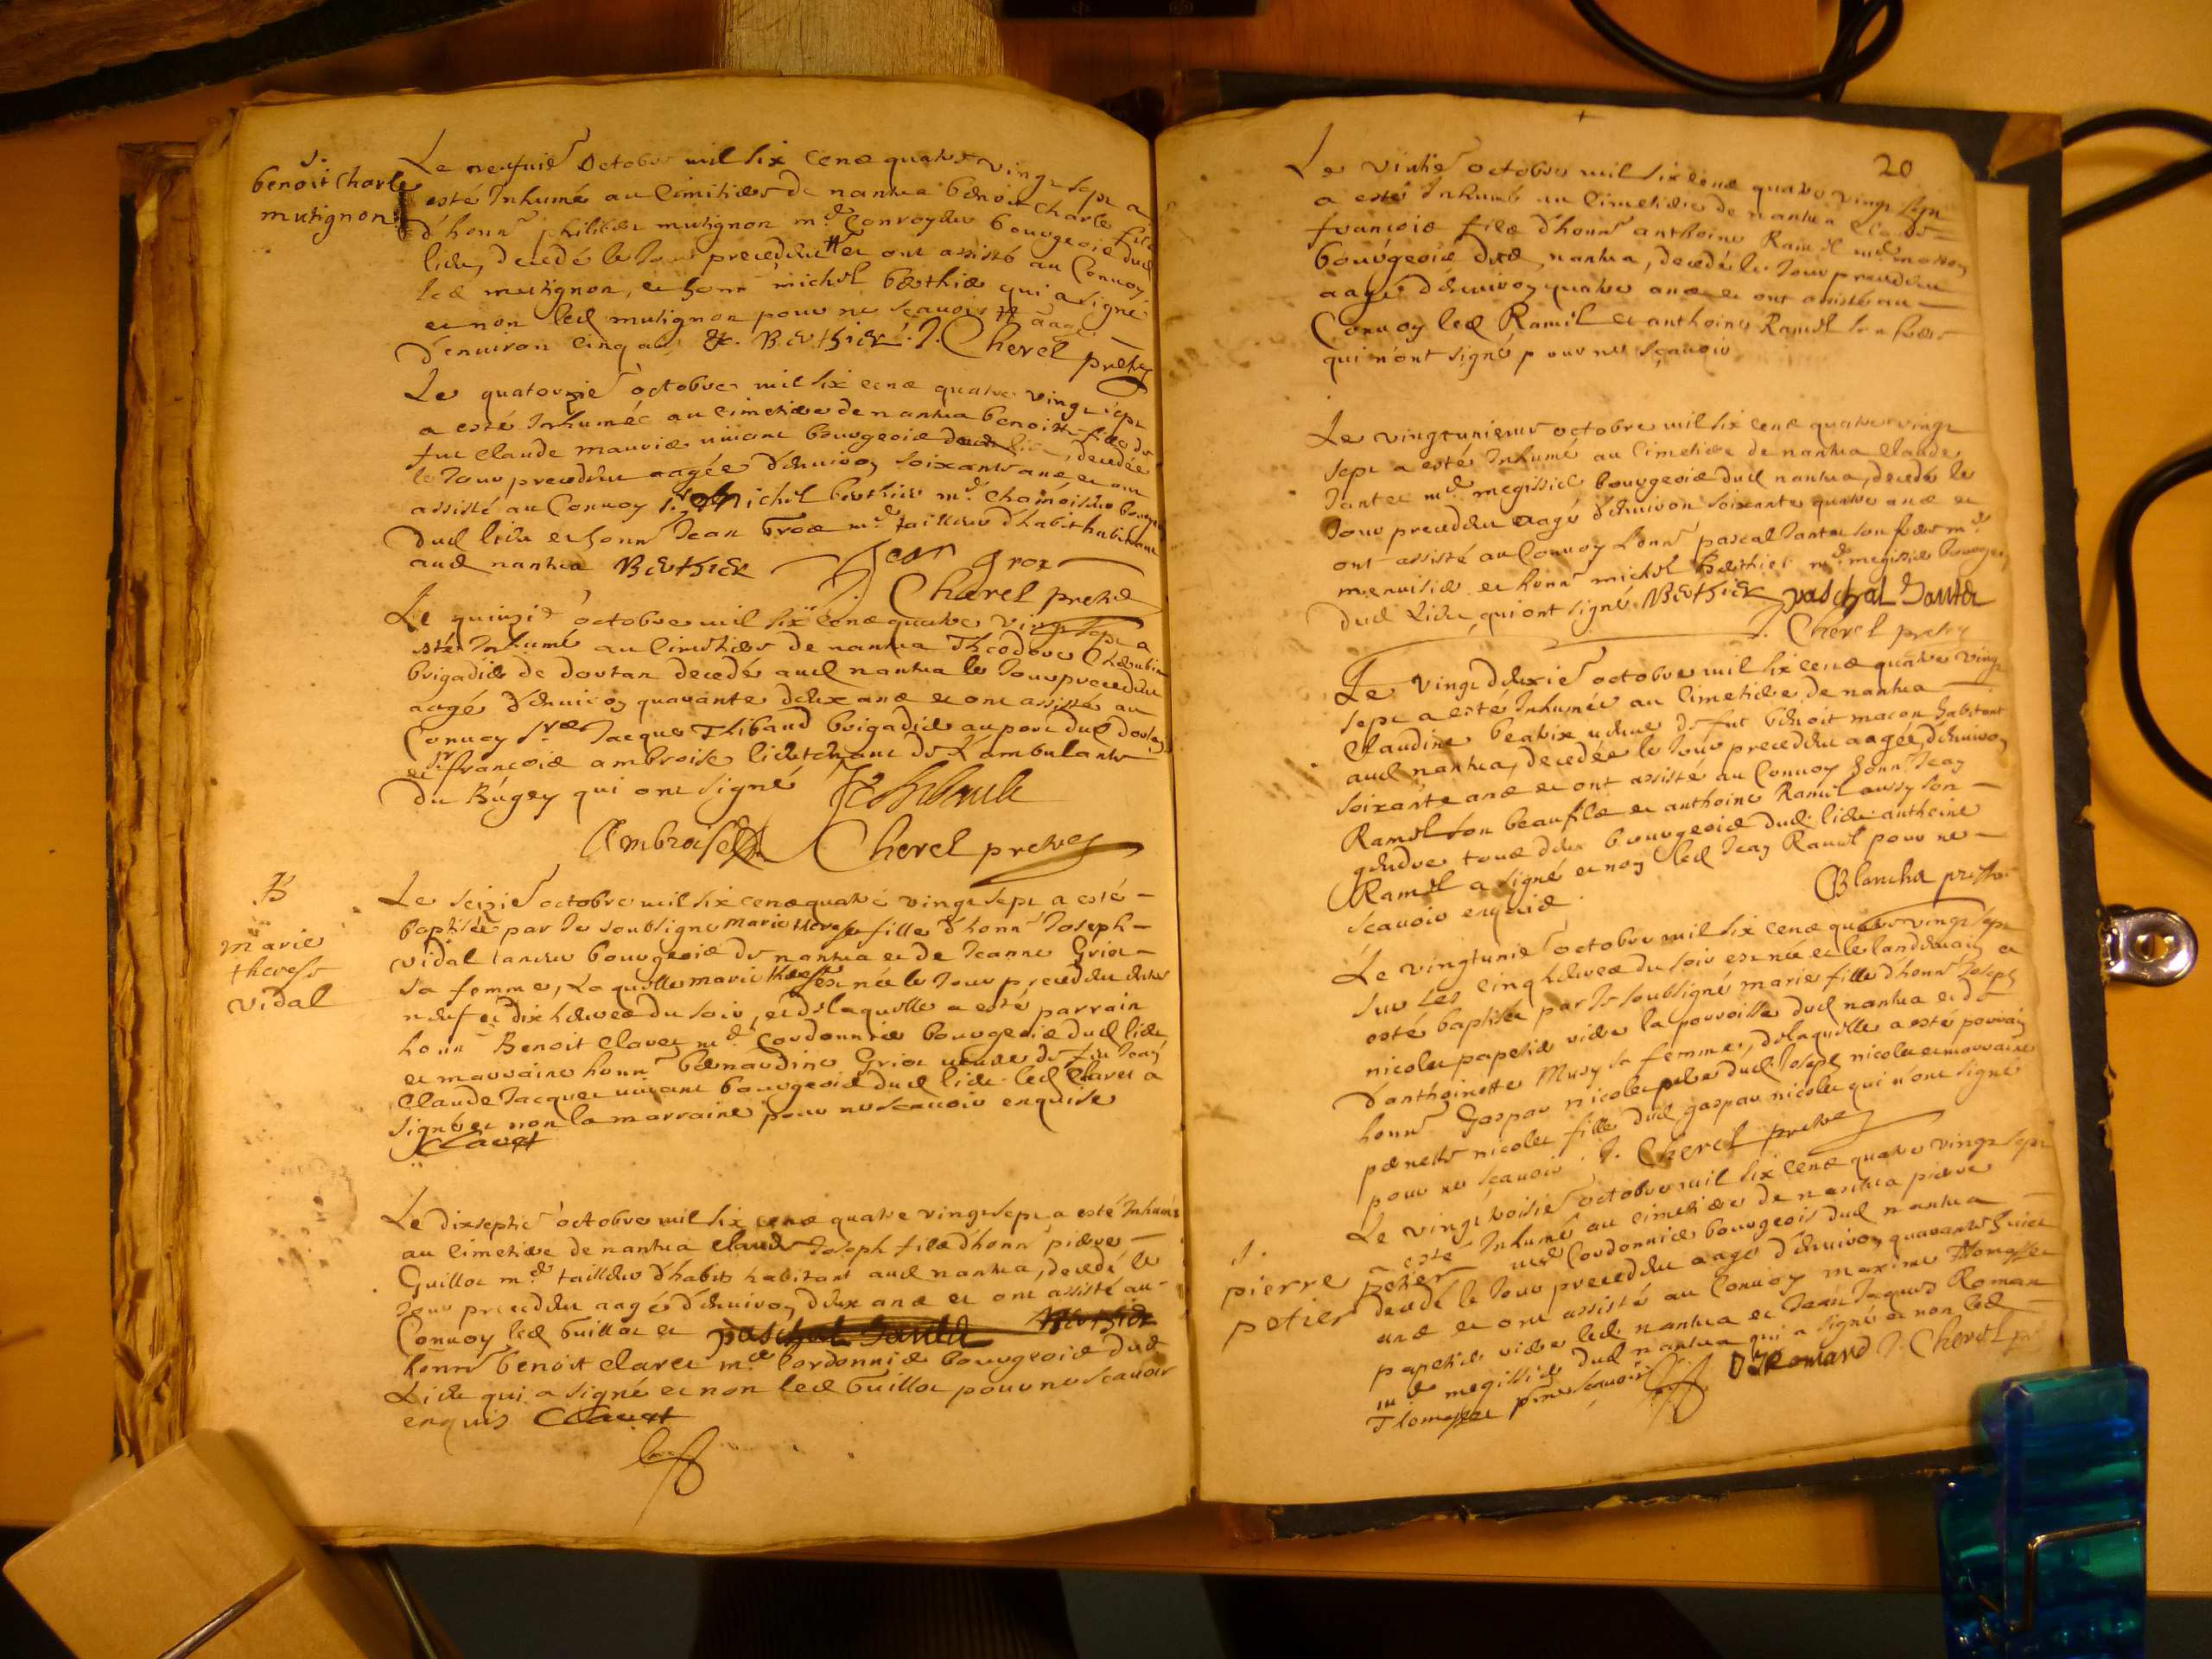 S.
benoit Charle
mutignon
Le neufuie octobre mil six cens quatre vingt sept a
esté Inhumé au Cimitiere de nantua benoit Charle filz
d'honn philiber mutignon md Conroyeur bourgeois dud
lieu, decedé le Jour precedent et ont assisté au Convoy
led mutignon, et honn michel berthier qui a signé
et non led mutignon pour ne scavoir aagé
d'environ cinq ans &. Berthier. J. Cherel pretre
Le quatorzie octobre mil six cens quatre vingt sept
a esté Inhumée au cimetiere de nantua benoitte fille de
fut claude mauris vivant bourgeois dud lieu, decedée
le Jour precedent aagée d'environ soixante ans et ont
assisté au Convoy michel berthier md Chamoiseur bourg
dud lieu et honn Jean Groz md tailleur d'habit habitant
aud nantua Berthier Jean groz
J. Cherel pretre
Le quinzie octobre mil six cens quatre vingt sept a
esté Inhumé au Cimetiere de nantua Theodore Cherubin
brigadier de dortan decedé aud nantua le Jour precedent
aagé d'environ quarante deux ans et ont assisté au
Convoy Srs Jacque Thibaud brigadier au port dud dortan
et Sr françois ambroise lieutenant de L'ambulante
du Bugey qui ont signé
Ambroise Cherel pretre
B
marie
therese
vidal
Le seizie octobre mil six cens quatre vingt sept a esté
baptisée par Je soubsigné marie therese fille d'honn Joseph
vidal taneur bourgeois de nantua et de Jeanne Griot
sa femme, Laquelle marie therese est née le Jour precedent entre
neuf et dix heures du soir, et de laquelle a esté parrain
honn Benoit Claret md Cordonnier bourgeois dud lieu
et marraine honn bernardine Griot veuve de fut Jean
Claude Jacquet vivant bourgeois dud lieu led Claret a
signé et non la marraine pour ne scavoir enquise
Claret
Le dixseptie octobre mil six cens quatre vingt sept a esté Inhumé
au Cimetiere de nantua claude Joseph filz d'honn pierre
Guillot md tailleur d'habits habitant aud nantua, decedé le
Jour precedent aagé d'environ deux ans et ont assisté au
Convoy led Guillot et paschal Jantet Berthier
honn benoit claret md Cordonnier bourgeois dud
Lieu qui a signé et non led Guillot pour ne scavoir
enquis Claret
20
Le vintie octobre mil six cens quatre vingt sept
a esté Inhumé au Cimetiere de nantua Claude
françois filz d'honn anthoine Ramel md masson
bourgeois dud nantua, decedé le Jour precedent
aagé d'environ quatre ans et ont assisté au
Convoy led Ramel et anthoine Ramel son frere
qui n'ont signé pour ne scavoir
Le vingtunieme octobre mil six cens quatre vingt
sept a esté Inhumé au Cimetiere de nantua claude
Jantet md megissier bourgeois dud nantua, decedé le
Jour precedent aagé d'environ soixante quatre ans et
ont assisté au Convoy honn pascal Jantet son frere md
menuisier et honn michel Berthier md megissier bourgeois
dud Lieu, qui ont signé Berthier paschal Jantet
J. Cherel pretre
Le vingt deuxie octobre mil six cens quatre vingt
sept a esté Inhumée au Cimetiere de nantua
Claudine beatrix veuve de fut benoit macon habitant
aud nantua, decedée le Jour precedent aagée d'environ
soixante ans et ont assisté au Convoy honn Jean
Ramel son beaufilz et anthoine Ramel aussy son
gendre tous deux bourgeois dud lieu anthoine
Ramel a signé et non led Jean Ramel pour ne
scavoir enquis Blanchet pretre
Le vingtunie octobre mil six cens quatre vingt sept
sur Les cinq heures du soir est née et le landemain a
esté baptisée par Je soubsigné marie fille d'honn Joseph
nicolet papetier riere la parroisse dud nantua et
d'anthoinette Mury sa femme, de laquelle a esté parrain
honn Gaspar nicolet pere dud Joseph nicolet et marraine
pernette nicolet fille dud gaspar nicolet qui n'ont signé
pour ne scavoir. J. Cherel pretre
S.
pierre
petier
Le vingt troisie octobre mil six cens quatre vingt sept
a esté Inhumé au cimetiere de nantua pierre
petier md Cordonnier bourgeois dud nantua
decedé le Jour precedent aagé d'environ quarante huict
ans et ont assisté au Convoy maxime Thomasset
papetier riere led nantua et Jean Jaques Roman
md megissier dud nantua qui a signé et non led
Thomasset pr ne scavoir J J Romand J. Cherel pr